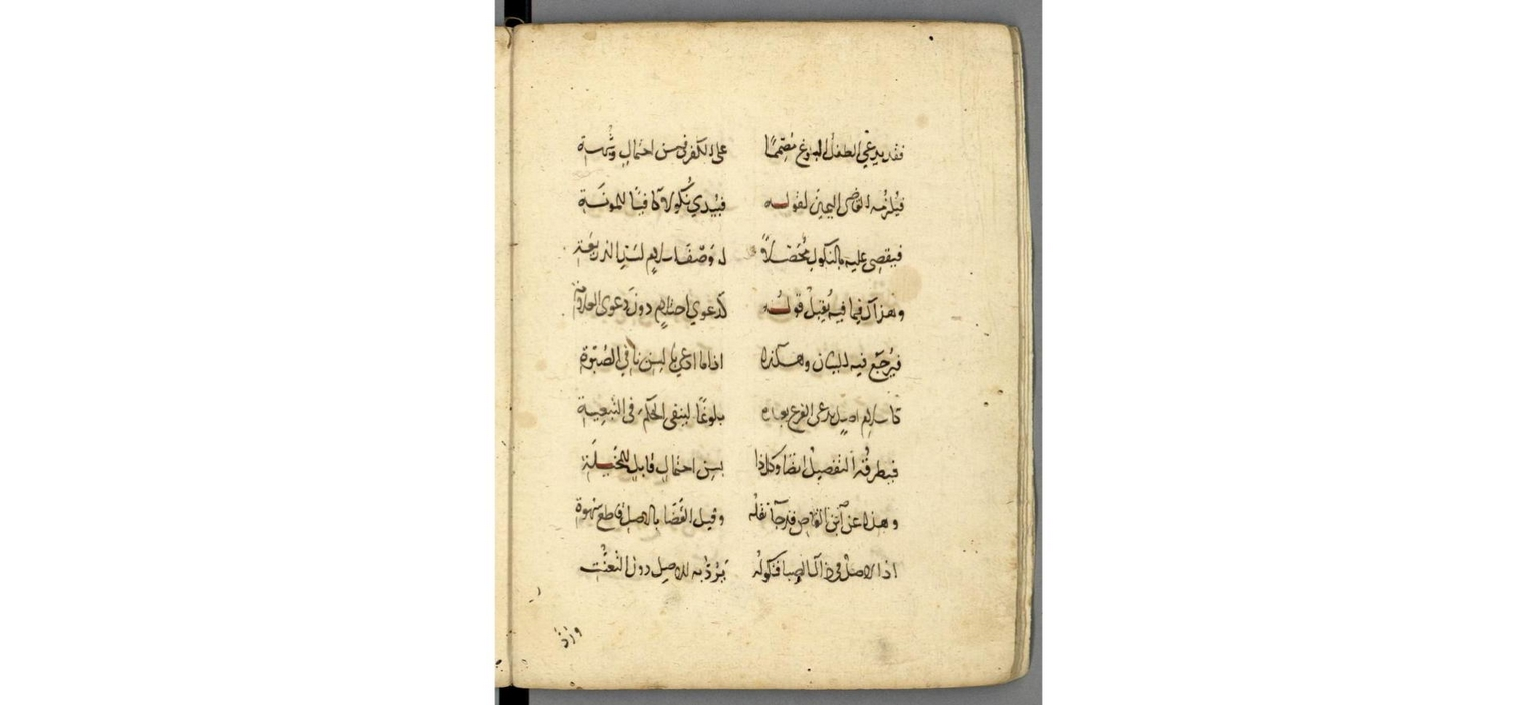 فقد يدعي الطفل البلوغ مصمما على الكفر في سن احتمال وشهبة
فيلزمه القاضي اليمين لقوله فيبدي نكولا كافيا للمونة
فيقضى عليه بالنكول محصلا لوصف اسلام لسد الذريعة
وهذاك فيما فيه يقبل قوله كدعوي احتلام دون دعوى العلامة
فيرجع فيه للبيان وهكذا اذا ما ادعي بالسن نافي الصبوة
كاسلام اصل يدعى الفرع بعده بلوغا لينفي الحكم في التبعية
فيطرقه التفصيل ايضا وكل ذا بسن احتمال قابل للمخيلة
وهذا عن ابن القاص قد جا نقله وقيل القضا بالاصل قاطع شهوة
اذا الاصل في ذاك الصبا فنكوله يرد به للاصل دون التعنت